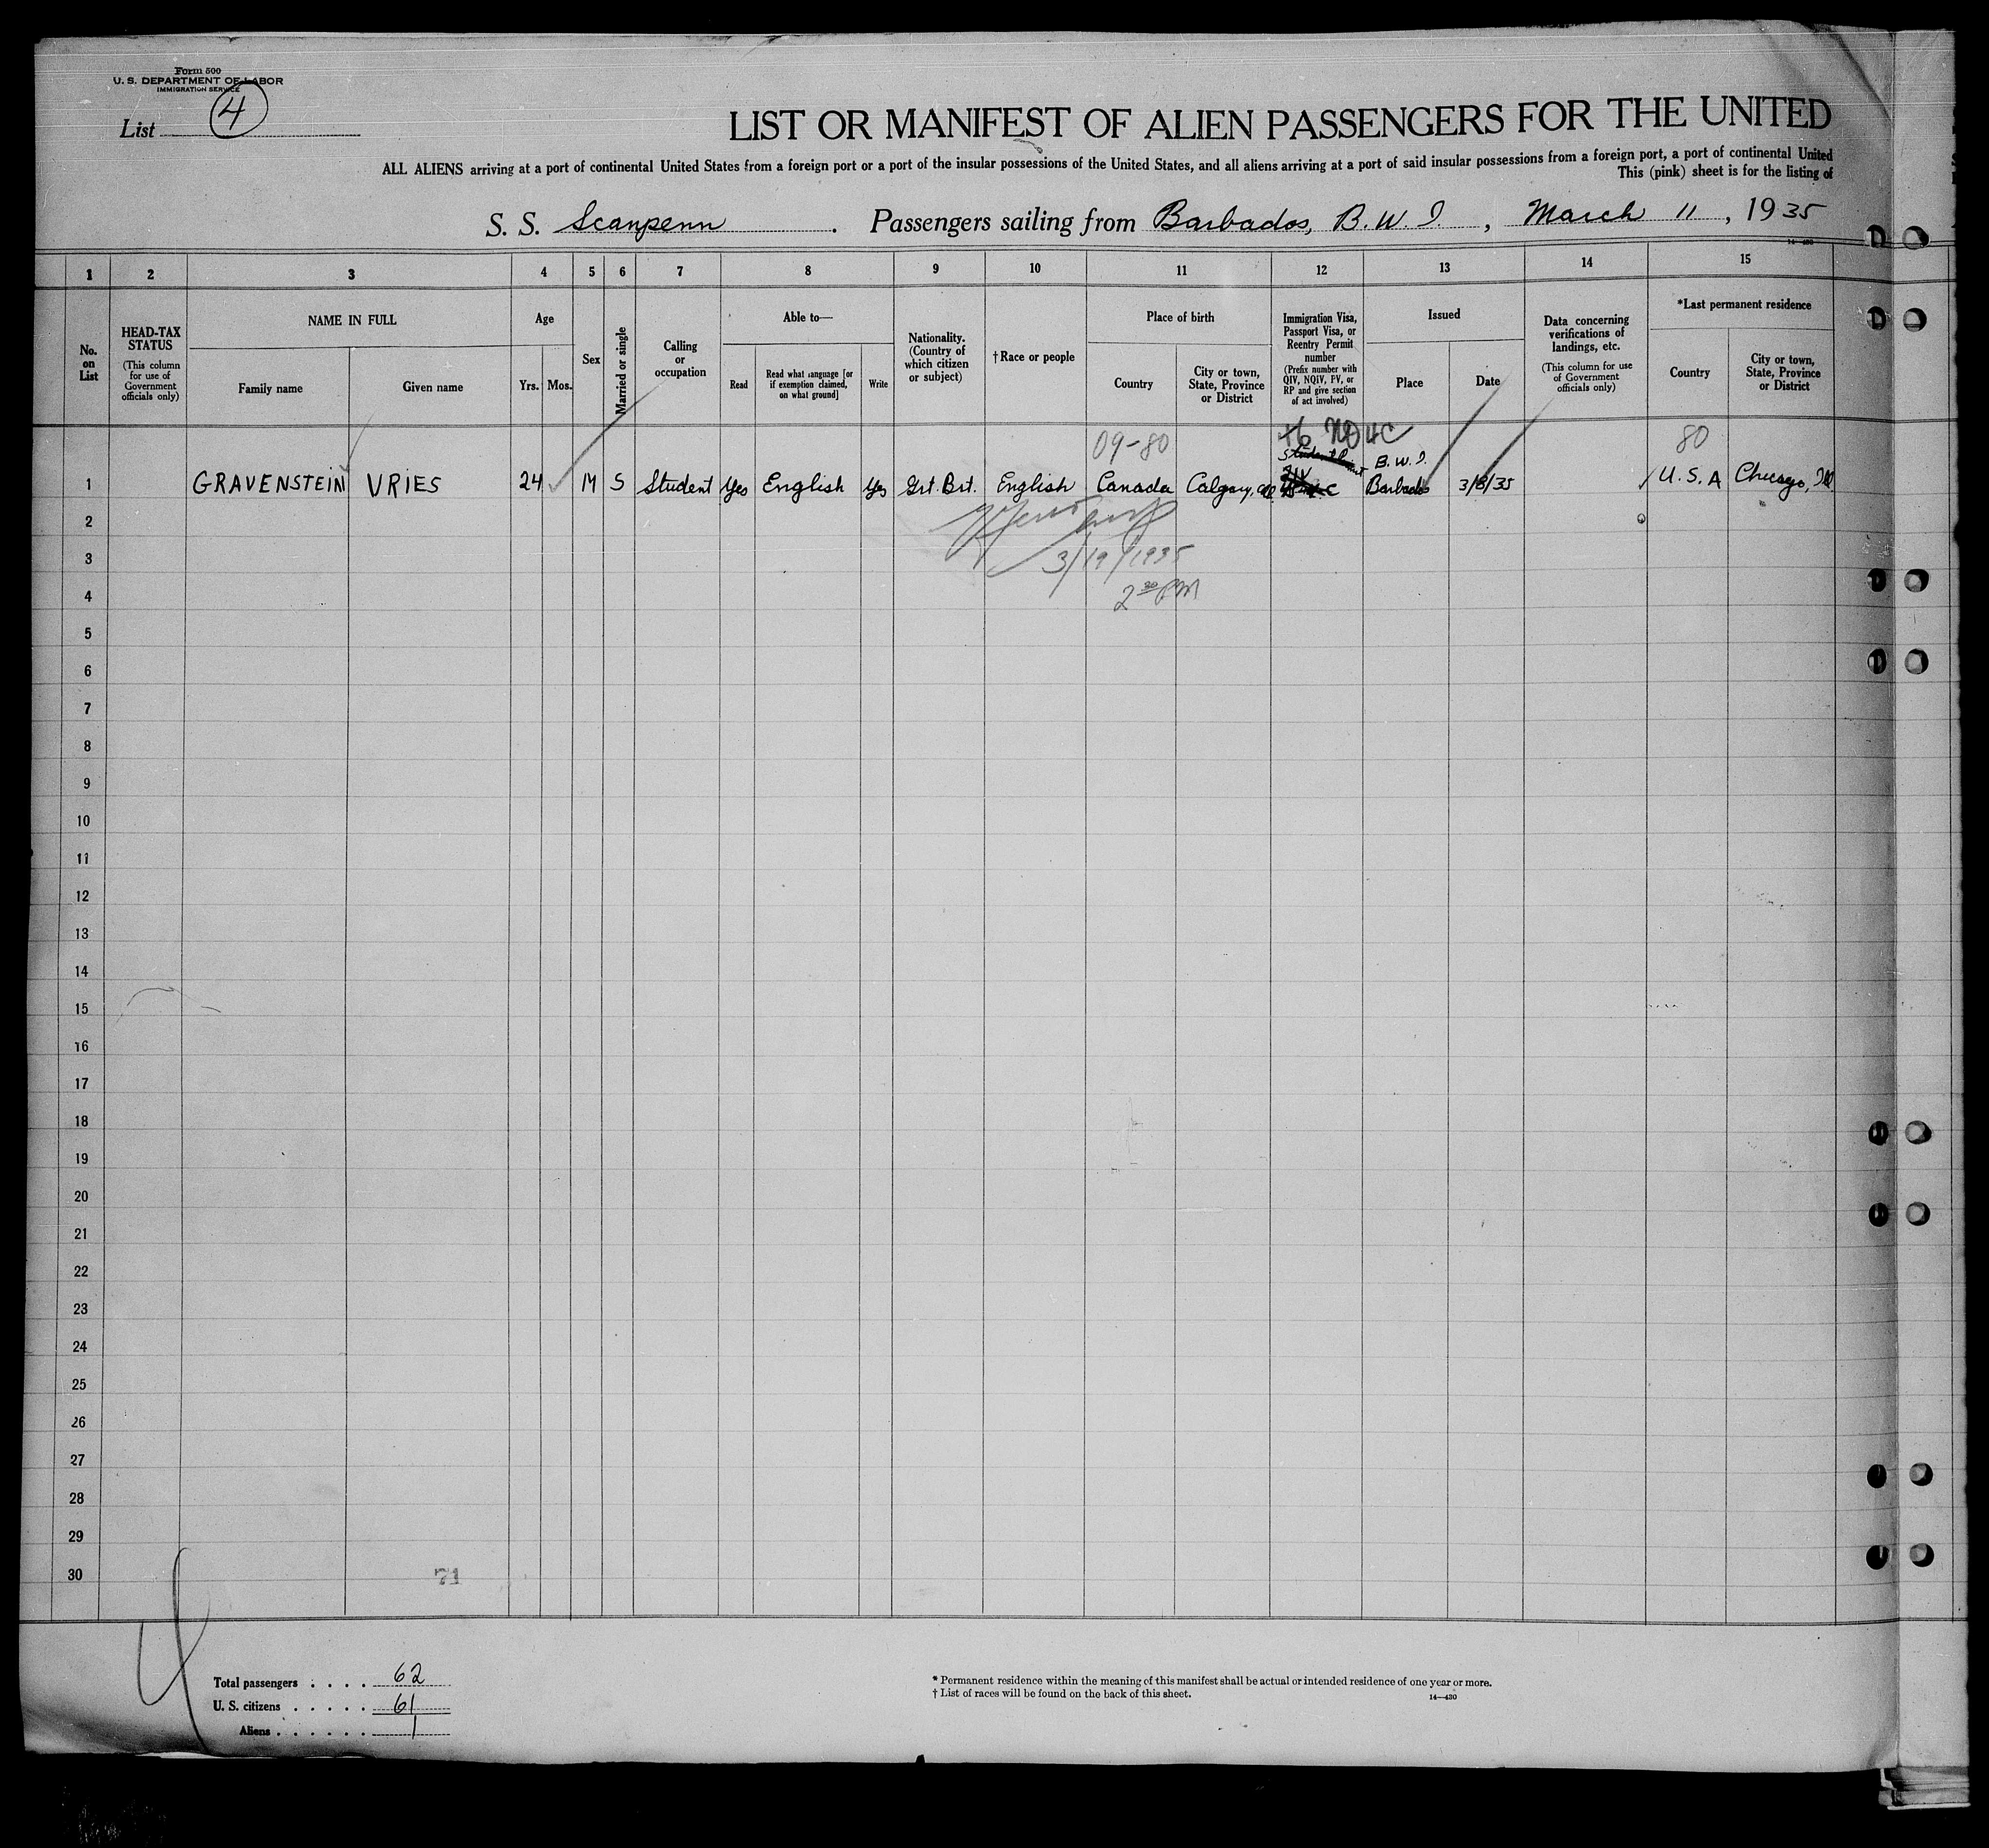 Form 500
U. S. DEPARTMENT OF LABOR
IMMIGRATION SERVICE
List 4
LIST OR MANIFEST OF ALIEN PASSENGERS FOR THE UNITED
ALL ALIENS arriving at a port of continental United States from a foreign port or a port of the insular possessions of the United States, and all aliens arriving at a port of said insular possessions from a foreign port, a port of continental United
This (pink) sheet is for the listing of
S. S. Scanpenn. Passengers sailing from Barbados, B. W. I., March 11, 1935
14—430
1 2 3 4 5 6 7 8 9 10 11 12 13 14 15
No. on List
HEAD-TAX STATUS
(This column for use of Government officials only)
NAME IN FULL
Family name
Given name
Age
Yrs.
Mos.
Sex
Married or single
Calling or occupation
Able to—
Read
Read what language [or if exemption claimed, on what ground]
Write
Nationality. (Country of which citizen or subject)
†Race or people
Place of birth
Country
City or town, State, Province or District
Immigration Visa, Passport Visa, or Reentry Permit number
(Prefix number with QIV, NQIV, PV, or RP and give section of act involved)
Issued
Place
Date
Data concerning verifications of landings, etc.
(This column for use of Government officials only)
*Last permanent residence
Country
City or town, State, Province or District
09-80
80
B. W. I.
1 GRAVENSTEIN VRIES 24 M S Student Yes English Yes Grt. Brt. English Canada Calgary, Barbados 3/8/35 U.S.A Chicago, Ill
2
3 3/19/1935
4 2 30 PM
5
6
7
8
9
10
11
12
13
14
15
16
17
18
19
20
21
22
23
24
25
26
27
28
29
30
71
Total passengers . . . . 62
U. S. citizens . . . . . 61
Aliens . . . . . . 1
* Permanent residence within the meaning of this manifest shall be actual or intended residence of one year or more.
† List of races will be found on the back of this sheet.
14—430